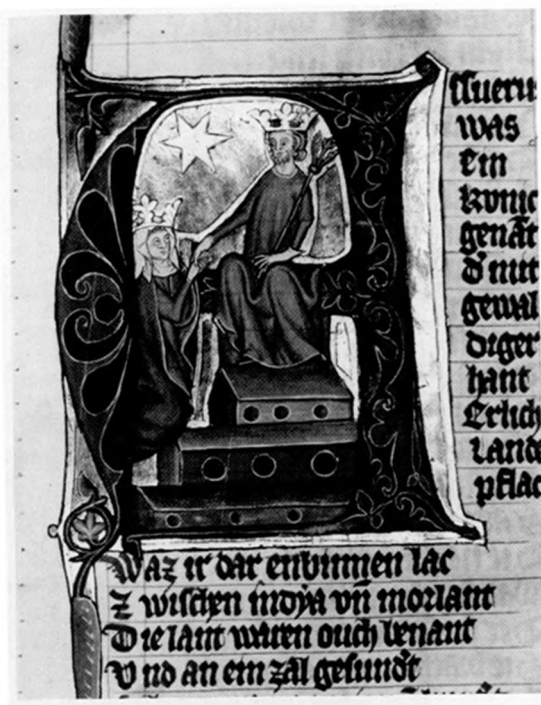 ssueru
was
Ein
kvnic
genāt
d' mit
gewal
diger
hant
Erlich
lande
pflac
Waz ir dar enbinnen lac
Z wischen indya vn̄ morlant
Die lant waren ouch benant
V nd an ein zal gesundt